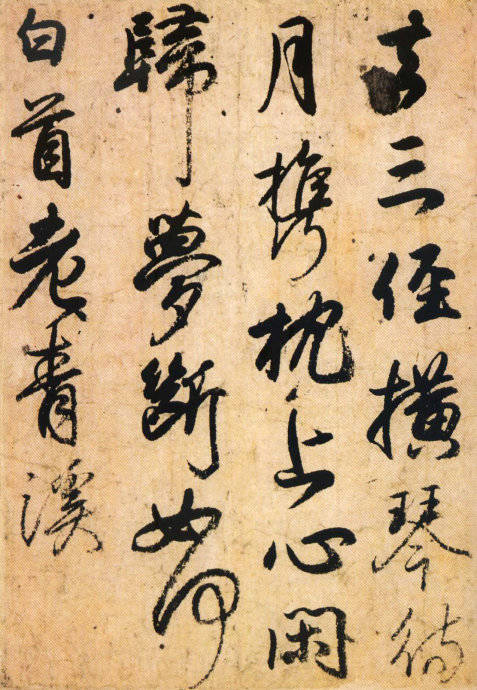 三徑橫琴待
月攜枕上心閑
歸夢斷如何
白首老青溪